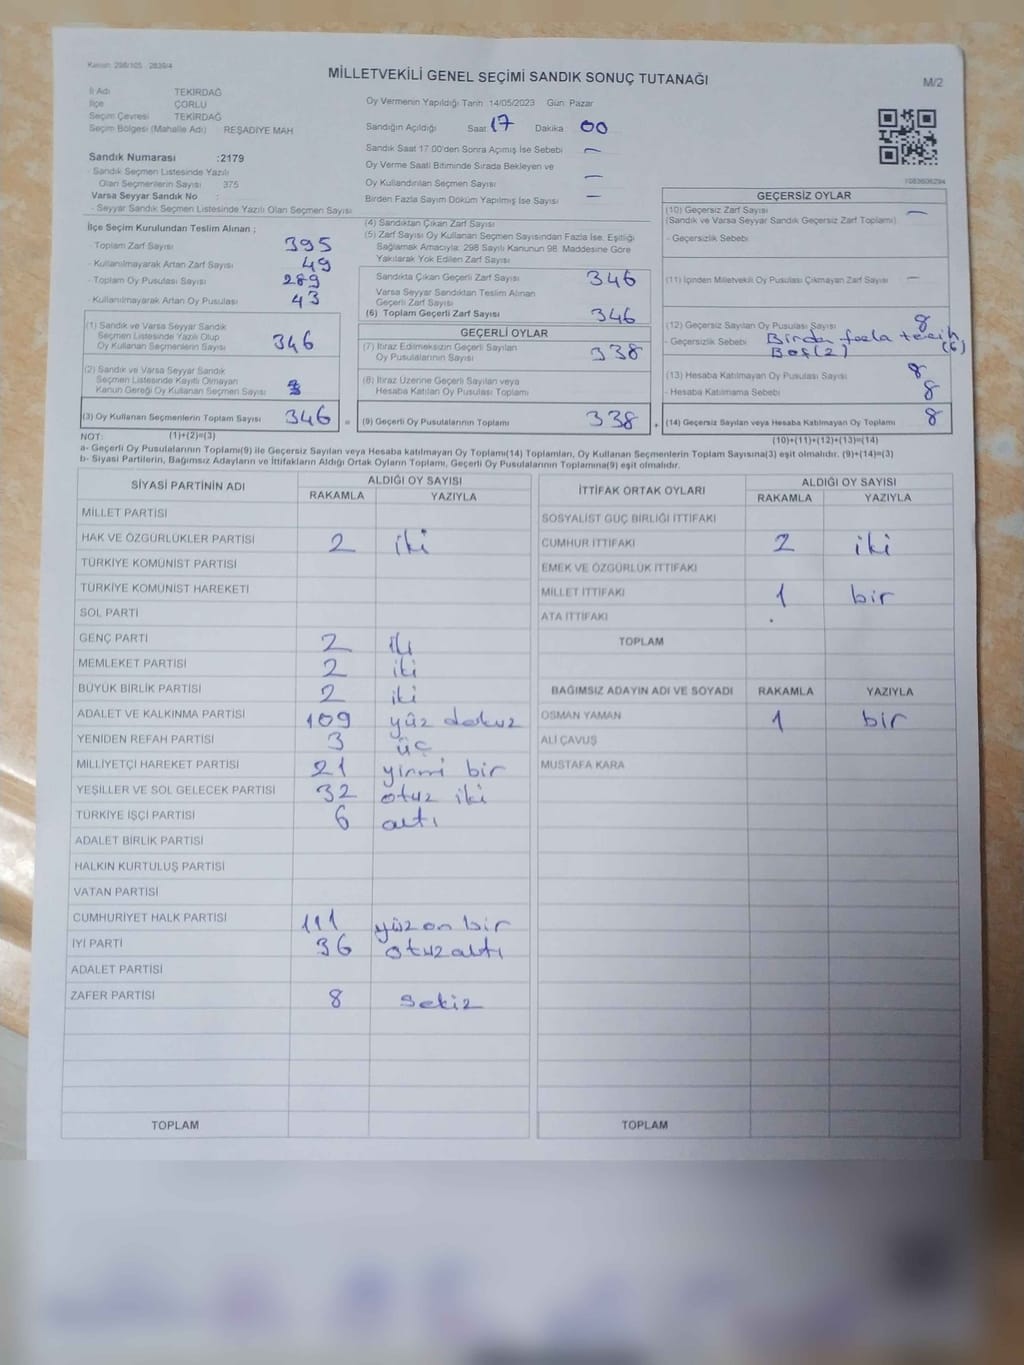 Kanun: 298/105 - 2839/4
MİLLETVEKİLİ GENEL SEÇİMİ SANDIK SONUÇ TUTANAĞI
M/2
İl Adı TEKİRDAĞ
İlçe ÇORLU
Seçim Çevresi TEKİRDAĞ
Seçim Bölgesi (Mahalle Adı) REŞADİYE MAH
Sandık Numarası :2179
- Sandık Seçmen Listesinde Yazılı
Olan Seçmenlerin Sayısı 375
Varsa Seyyar Sandık No :
- Seyyar Sandık Seçmen Listesinde Yazılı Olan Seçmen Sayısı
Oy Vermenin Yapıldığı Tarih 14/05/2023 Gün: Pazar
Sandığın Açıldığı Saat: 17 Dakika 00
Sandık Saat 17:00'den Sonra Açımış İse Sebebi —
Oy Verme Saati Bitiminde Sırada Bekleyen ve
Oy Kullandırılan Seçmen Sayısı —
Birden Fazla Sayım Döküm Yapılmış İse Sayısı —
1083606294
İlçe Seçim Kurulundan Teslim Alınan ;
- Toplam Zarf Sayısı 395
- Kullanılmayarak Artan Zarf Sayısı 49
- Toplam Oy Pusulası Sayısı 289
- Kullanılmayarak Artan Oy Pusulası 43
(1) Sandık ve Varsa Seyyar Sandık
Seçmen Listesinde Yazılı Olup
Oy Kullanan Seçmenlerin Sayısı 346
(2) Sandık ve Varsa Seyyar Sandık
Seçmen Listesinde Kayıtlı Olmayan
Kanun Gereği Oy Kullanan Seçmen Sayısı
(3) Oy Kullanan Seçmenlerin Toplam Sayısı 346 =
(1)+(2)=(3)
(4) Sandıktan Çıkan Zarf Sayısı
(5) Zarf Sayısı Oy Kullanan Seçmen Sayısından Fazla İse, Eşitliği
Sağlamak Amacıyla; 298 Sayılı Kanunun 98. Maddesine Göre
Yakılarak Yok Edilen Zarf Sayısı
Sandıkta Çıkan Geçerli Zarf Sayısı 346
Varsa Seyyar Sandıktan Teslim Alınan
Geçerli Zarf Sayısı
(6) Toplam Geçerli Zarf Sayısı 346
GEÇERLİ OYLAR
(7) İtiraz Edilmeksizin Geçerli Sayılan
Oy Pusulalarının Sayısı 338
(8) İtiraz Üzerine Geçerli Sayılan veya
Hesaba Katılan Oy Pusulası Toplamı
(9) Geçerli Oy Pusulalarının Toplamı 338 +
GEÇERSİZ OYLAR
(10) Geçersiz Zarf Sayısı —
(Sandık ve Varsa Seyyar Sandık Geçersiz Zarf Toplamı)
- Geçersizlik Sebebi
(11) İçinden Milletvekili Oy Pusulası Çıkmayan Zarf Sayısı —
(12) Geçersiz Sayılan Oy Pusulası Sayısı 8
- Geçersizlik Sebebi Birden fazla tercih (6)
Boş(2)
(13) Hesaba Katılmayan Oy Pusulası Sayısı 8
- Hesaba Katılmama Sebebi 8
(14) Geçersiz Sayılan veya Hesaba Katılmayan Oy Toplamı 8
(10)+(11)+(12)+(13)=(14)
NOT:
a- Geçerli Oy Pusulalarının Toplamı(9) ile Geçersiz Sayılan veya Hesaba katılmayan Oy Toplamı(14) Toplamları, Oy Kullanan Seçmenlerin Toplam Sayısına(3) eşit olmalıdır. (9)+(14)=(3)
b- Siyasi Partilerin, Bağımsız Adayların ve İttifakların Aldığı Ortak Oyların Toplamı, Geçerli Oy Pusulalarının Toplamına(9) eşit olmalıdır.
SİYASİ PARTİNİN ADI ALDIĞI OY SAYISI
RAKAMLA YAZIYLA
MİLLET PARTİSİ
HAK VE ÖZGÜRLÜKLER PARTİSİ 2 iki
TÜRKİYE KOMÜNİST PARTİSİ
TÜRKİYE KOMÜNİST HAREKETİ
SOL PARTİ
GENÇ PARTİ 2 iki
MEMLEKET PARTİSİ 2 iki
BÜYÜK BİRLİK PARTİSİ 2 iki
ADALET VE KALKINMA PARTİSİ 109 yüz dokuz
YENİDEN REFAH PARTİSİ 3 üç
MİLLİYETÇİ HAREKET PARTİSİ 21 yirmi bir
YEŞİLLER VE SOL GELECEK PARTİSİ 32 otuz iki
TÜRKİYE İŞÇİ PARTİSİ 6 altı
ADALET BİRLİK PARTİSİ
HALKIN KURTULUŞ PARTİSİ
VATAN PARTİSİ
CUMHURİYET HALK PARTİSİ 111 yüz on bir
İYİ PARTİ 36 otuz altı
ADALET PARTİSİ
ZAFER PARTİSİ 8 sekiz
TOPLAM
İTTİFAK ORTAK OYLARI ALDIĞI OY SAYISI
RAKAMLA YAZIYLA
SOSYALİST GÜÇ BİRLİĞİ İTTİFAKI
CUMHUR İTTİFAKI 2 iki
EMEK VE ÖZGÜRLÜK İTTİFAKI
MİLLET İTTİFAKI 1 bir
ATA İTTİFAKI
TOPLAM
BAĞIMSIZ ADAYIN ADI VE SOYADI RAKAMLA YAZIYLA
OSMAN YAMAN 1 bir
ALİ ÇAVUŞ
MUSTAFA KARA
TOPLAM